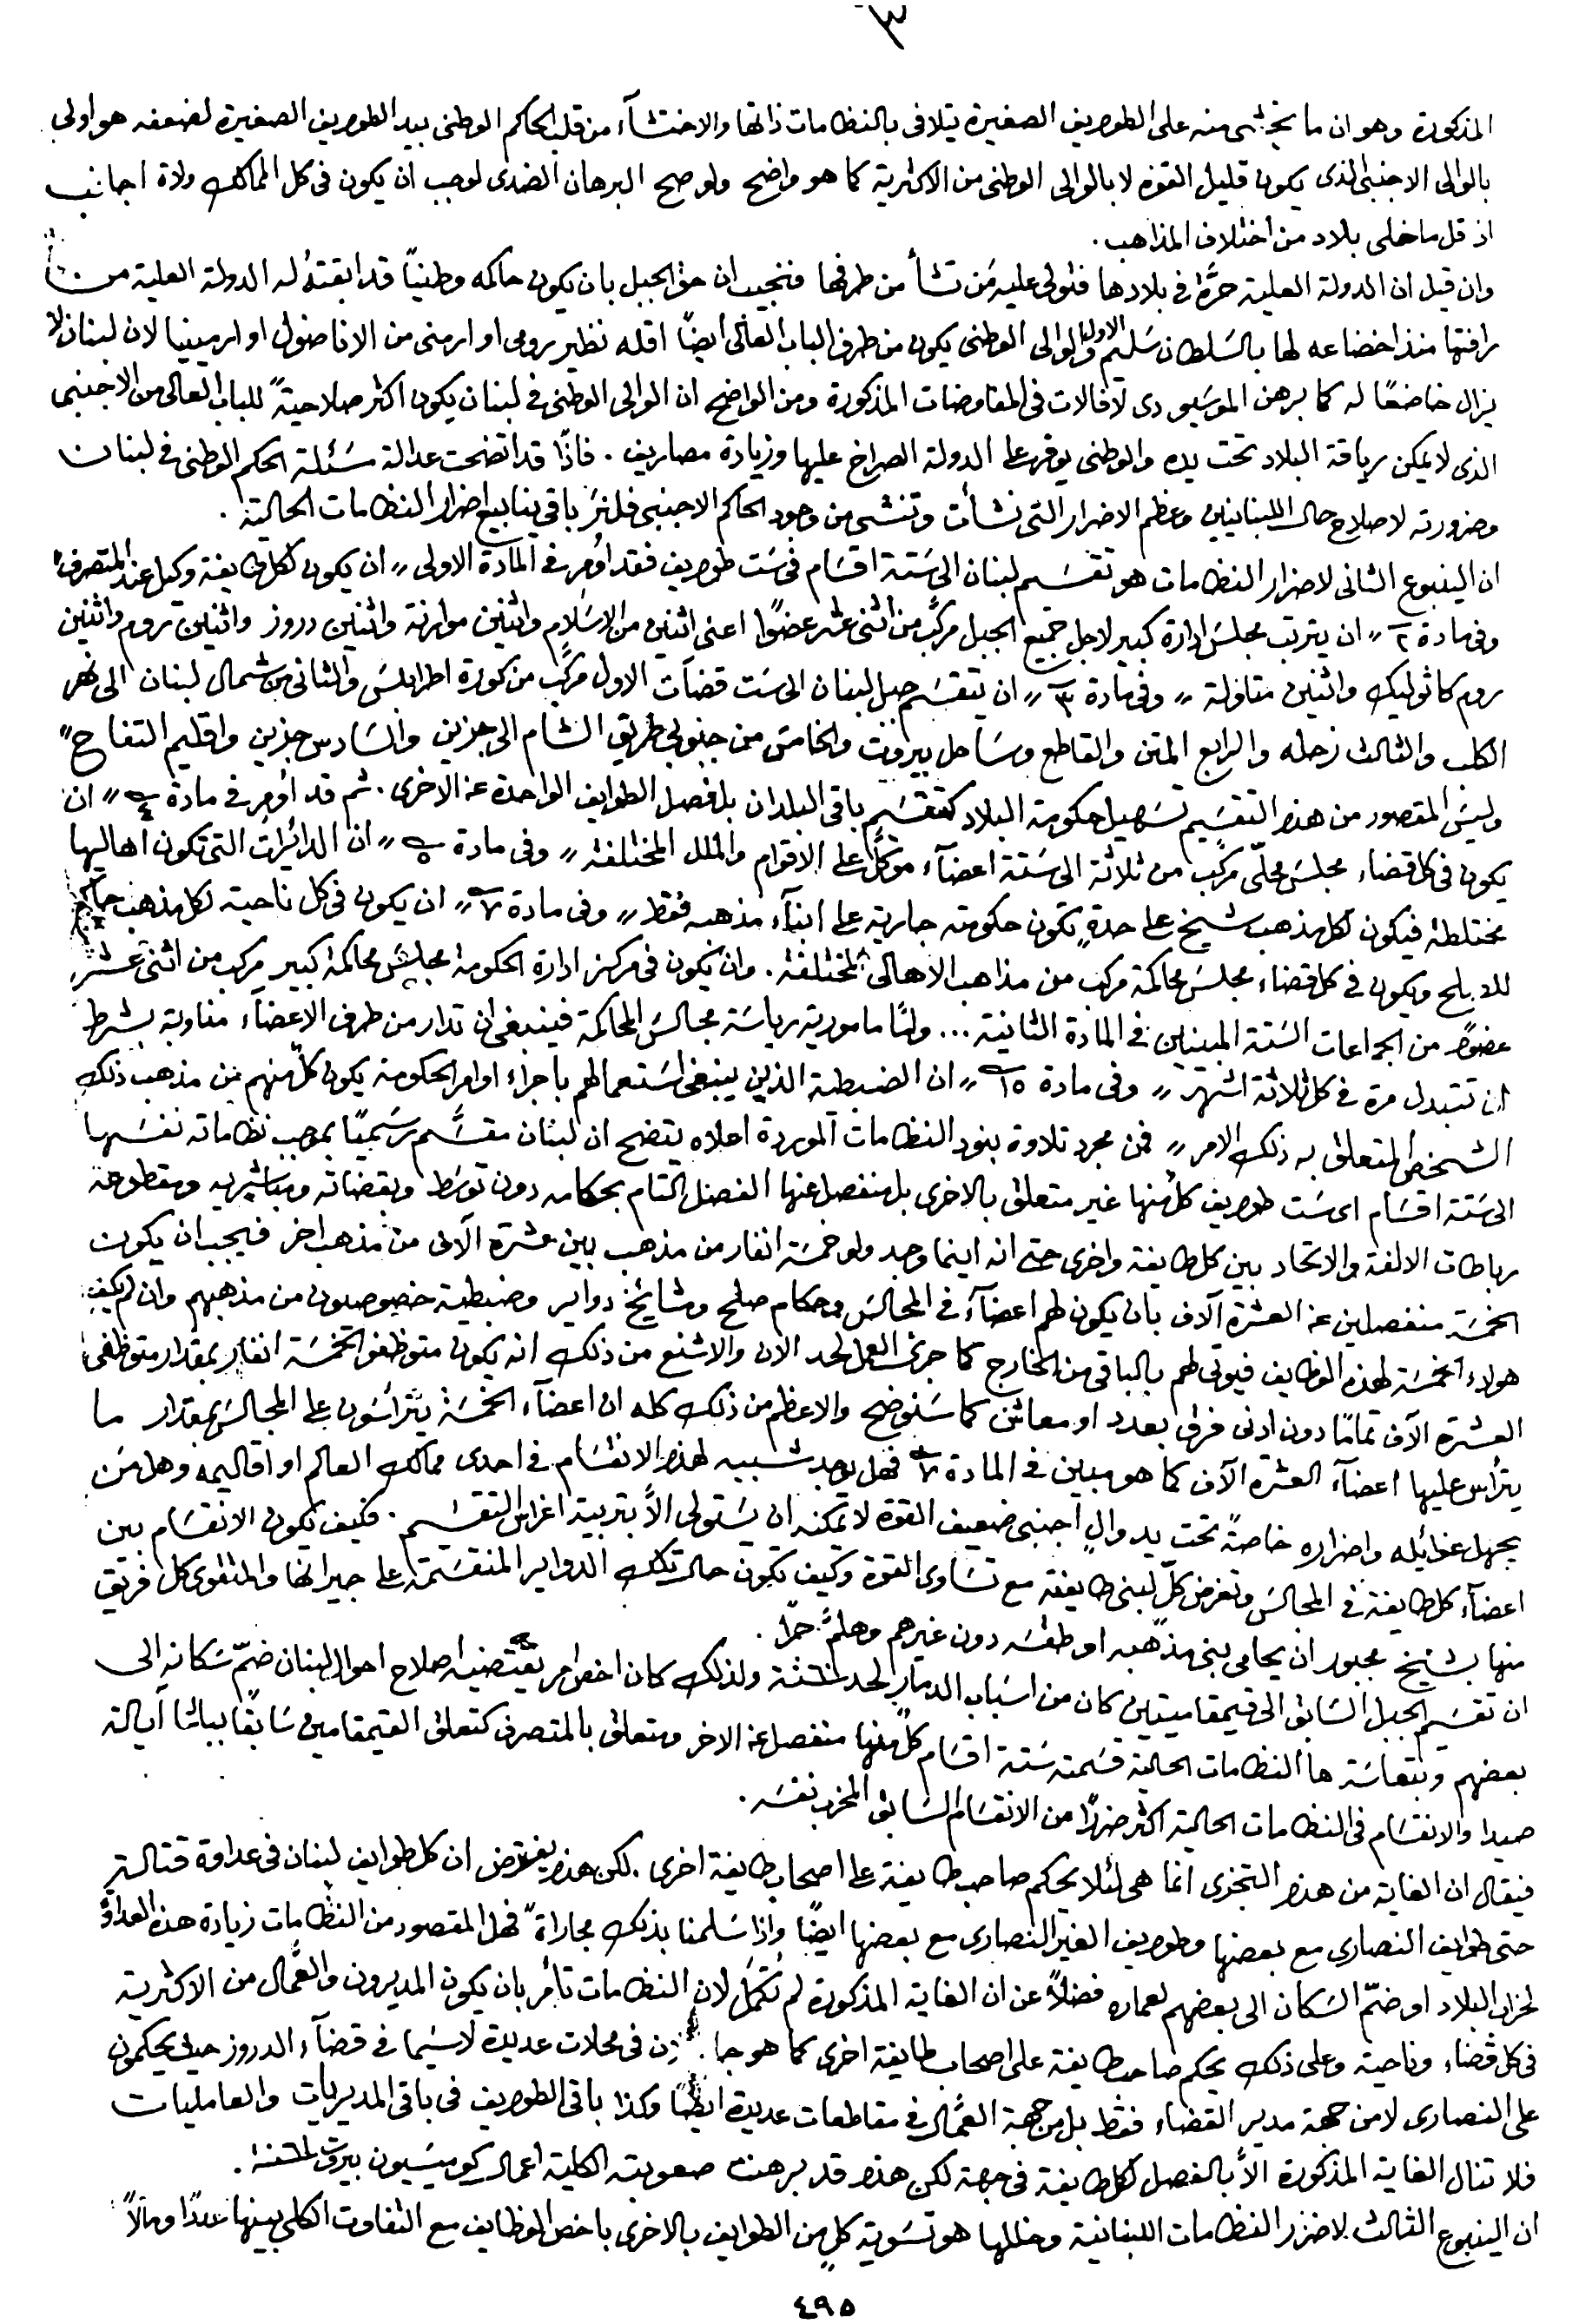 ٣
المذكورة وهو ان ما يخشى منه على الطوايف الصغيرة يتلافى بالنظامات ذاتها والاختشآء من قبل الحاكم الوطنى بيد الطوايف الصغيرة لضعفه هو اولى
بالوالى الاجنبى الذى يكون قليل القوة لا بالوالى الوطنى من الاكثرية كما هو واضح ولو صح البرهان الضدى لوجب ان يكون فى كل الممالك ولاة اجانب
اذ قل ما خلى بلاد من اختلاف المذاهب.
وان قيل ان الدولة العلية حرّة فى بلادها فتولى عليه مَن تشأ من طرفها فنجيب ان حق الجبل بان يكون حاكمه وطنيًا قد ابقتهُ له الدولة العلية من
رافتها منذ اخضاعه لها بالسلطان سليم الاول والوالى الوطنى يكون من طرف الباب العالى ايضًا اقله نظير رومى او ارمنى من الاناضول او ارمينيا لان لبنان لا
يزال خاضعًا له كما برهن الموسيو دى لافالات فى المفاوضات المذكورة ومن الواضح ان الوالى الوطنى فى لبنان يكون اكثر صلاحيةً للباب العالى من الاجنبى
الذى لا يمكن رياقة البلاد تحت يده والوطنى يوفر على الدولة الصراخ عليها وزيادة مصاريف . فاذًا قد اتضحت عدالة مسئلة الحكم الوطنى فى لبنان
وضرورته لاصلاح حال اللبنانيين وعظم الاضرار التى نشأت وتنشى من وجود الحاكم الاجنبى فلنرَ باقى ينابيع اضرار النظامات الحالية .
ان الينبوع الثانى لاضرار النظامات هو تقسيم لبنان الى ستة اقسام فى ست طوايف فقد اُومر فى المادة الاولى " ان يكون لكل طايفة وكيل عند المتصرف "
وفى مادة ٢ " ان يترتب مجلس ادارة كبير لاجل جميع الجبل مركّب من اثنى عشر عضوًا اعنى اثنين من الاسلام واثنين موارنة واثنين دروز واثنين روم واثنين
روم كاثوليك واثنين متاولة " وفى مادة ٣ " ان يتقسم جبل لبنان الى ست قضآت الاول مركّب من كورة اطرابلس والثانى من شمال لبنان الى نهر
الكلب والثالث زحله والرابع المتن والقاطع وساحل بيروت والخامس من جنوبى طريق الشام الى جزين والسادس جزين واقليم التفاح "
وليس المقصود من هذا التقسيم تسهيل حكومة البلاد كتقسيم باقى البلدان بل فصل الطوايف الواحدة عن الاخرى . ثم قد اُومر فى مادة ٤ " ان
يكون فى كل قضاء مجلس محلّى مركّب من ثلاثة الى ستة اعضآء موكّل على الاقوام والملل المختلفة " وفى مادة ٥ " ان الدائرات التى تكون اهاليها
مختلطة فيكون لكل مذهب شيخ على حدةٍ تكون حكومته جارية على ابنآء مذهبه فقط " وفى مادة ٧ " ان يكون فى كل ناحية لكل مذهب حاكم
للصلح ويكون فى كل قضاء مجلس محاكمة مركب من مذاهب الاهالى المختلفة . وان يكون فى مركز ادارة الحكومة مجلس محاكمة كبير مركب من اثنى عشر
عضوًا من الجماعات الستة المبينين فى المادة الثانية ... وامّا مامورية رياسة مجالس المحاكمة فينبغى ان تدار من طرف الاعضآء مناوبة بشرط
ان تتبدل مرة فى كل ثلاثة اشهر " وفى مادة ١٥ " ان الضبطية الذين ينبغى استعمالهم باجراء اوامر الحكومة يكون كلٌ منهم من مذهب ذلك
الشخص المتعلق به ذلك الامر " فمن مجرد تلاوة بنود النظامات الموردة اعلاه يتضح ان لبنان مقسَّم رسميًا بموجب نظاماته نفسها
الى ستة اقسام اى ست طوايف كلٌ منها غير متعلق بالاخرى بل منفصل عنها الفصل التام بحكامه دون توسط وبقضاته ومباشريه ومقطوعة
رباطات الالفة والاتحاد بين كل طايفة واخرى حتى انه اينما وجد ولو خمسة انفار من مذهب بين عشرة آلاف من مذهب اخر فيجب ان يكون
الخمسة منفصلين عن العشرة آلاف بان يكون لهم اعضآء فى المجالس وحكام صلح ومشايخ دواير وضبطية خصوصيون من مذهبهم وان لم يكفِ
هولاء الخمسة لهذه الوظايف فيوتى لهم بالباقى من الخارج كما جرى العمل لحد الان والاشنع من ذلك انه يكون متوظفو الخمسة انفار بمقدار متوظفى
العشرة آلاف تمامًا دون ادنى فرق بعدد او معاش كما سنوضح والاعظم من ذلك كله ان اعضآء الخمسة يترأسون على المجالس بمقدار ما
يترأس عليها اعضآء العشرة الآف كما هو مبين فى المادة ٧ فهل يوجد شبيه لهذا الانقسام فى احدى ممالك العالم او اقاليمه وهل مَن
يجهل غوائله واضراره خاصةً تحت يد والٍ اجنبى ضعيف القوة لا يمكنه ان يستولى الاّ بتربية اغراس التقسيم . فكيف يكون الانقسام بين
اعضآء كل طايفة فى المجالس وتعرض كلٍ لبنى طايفته مع تساوى القوة وكيف تكون حال تلك الدواير المنقسمة على جيرانها والمتقوى كل فريق
منها بشيخ مجبور ان يحامى بنى مذهبه او طقسه دون غيرهم وهلمَّ جرًّا .
ان تقسيم الجبل السابق الى قيمقاميتين كان من اسباب الدمار لحد سنة ولذلك كان اخص امر يقتضيه اصلاح احوال لبنان ضمّ سكانه الى
بعضهم وبتعاسة ها النظامات الحالية قسمته ستة اقسام كلٌ منها منفصل عن الاخر ومتعلق بالمتصرف كتعلق القيمقامين سابقًا بباشا ايالة
صيدا والانقسام فى النظامات الحالية اكثر ضررًا من الانقسام السابق المخرب نفسه .
فيقال ان الغاية من هذا التجزى انما هى لئلا يحكم صاحب طايفة على اصحاب طايفة اخرى . لكن هذا يفترض ان كل طوايف لبنان فى عداوة قتالية
حتى طوايف النصارى مع بعضها وطوايف الغير النصارى مع بعضها ايضًا واذا سلمنا بذلك مجاراةً فهل المقصود من النظامات زيادة هذه العداوة
لخراب البلاد او ضمّ السكان الى بعضهم لعماره فضلاً عن ان الغاية المذكورة لم تُكمَل لان النظامات تأمر بان يكون المديرون والعمّال من الاكثرية
فى كل قضاء وناحية وعلى ذلك يحكم صاحب طايفة على اصحاب طايفة اخرى كما هو جا فى محلات عديدة لا سيما فى قضآء الدروز حيث يحكمون
على النصارى لا من جهة مدير القضاء فقط بل من جهة العمّال فى مقاطعات عديدة ايضًا وكذا باقى الطوايف فى باقى المديريات والعامليات
فلا تنال الغاية المذكورة الاّ بالفصل لكل طايفة فى جهة لكن هذا قد برهنت صعوبته الكلية اعمال كوميسيون بيروت سنة .
ان الينبوع الثالث لاضرار النظامات اللبنانية وخللها هو تسوية كلٍ من الطوايف بالاخرى باخص الوظايف مع التفاوت الكلى بينها عددًا ومالاً
٤٩٥